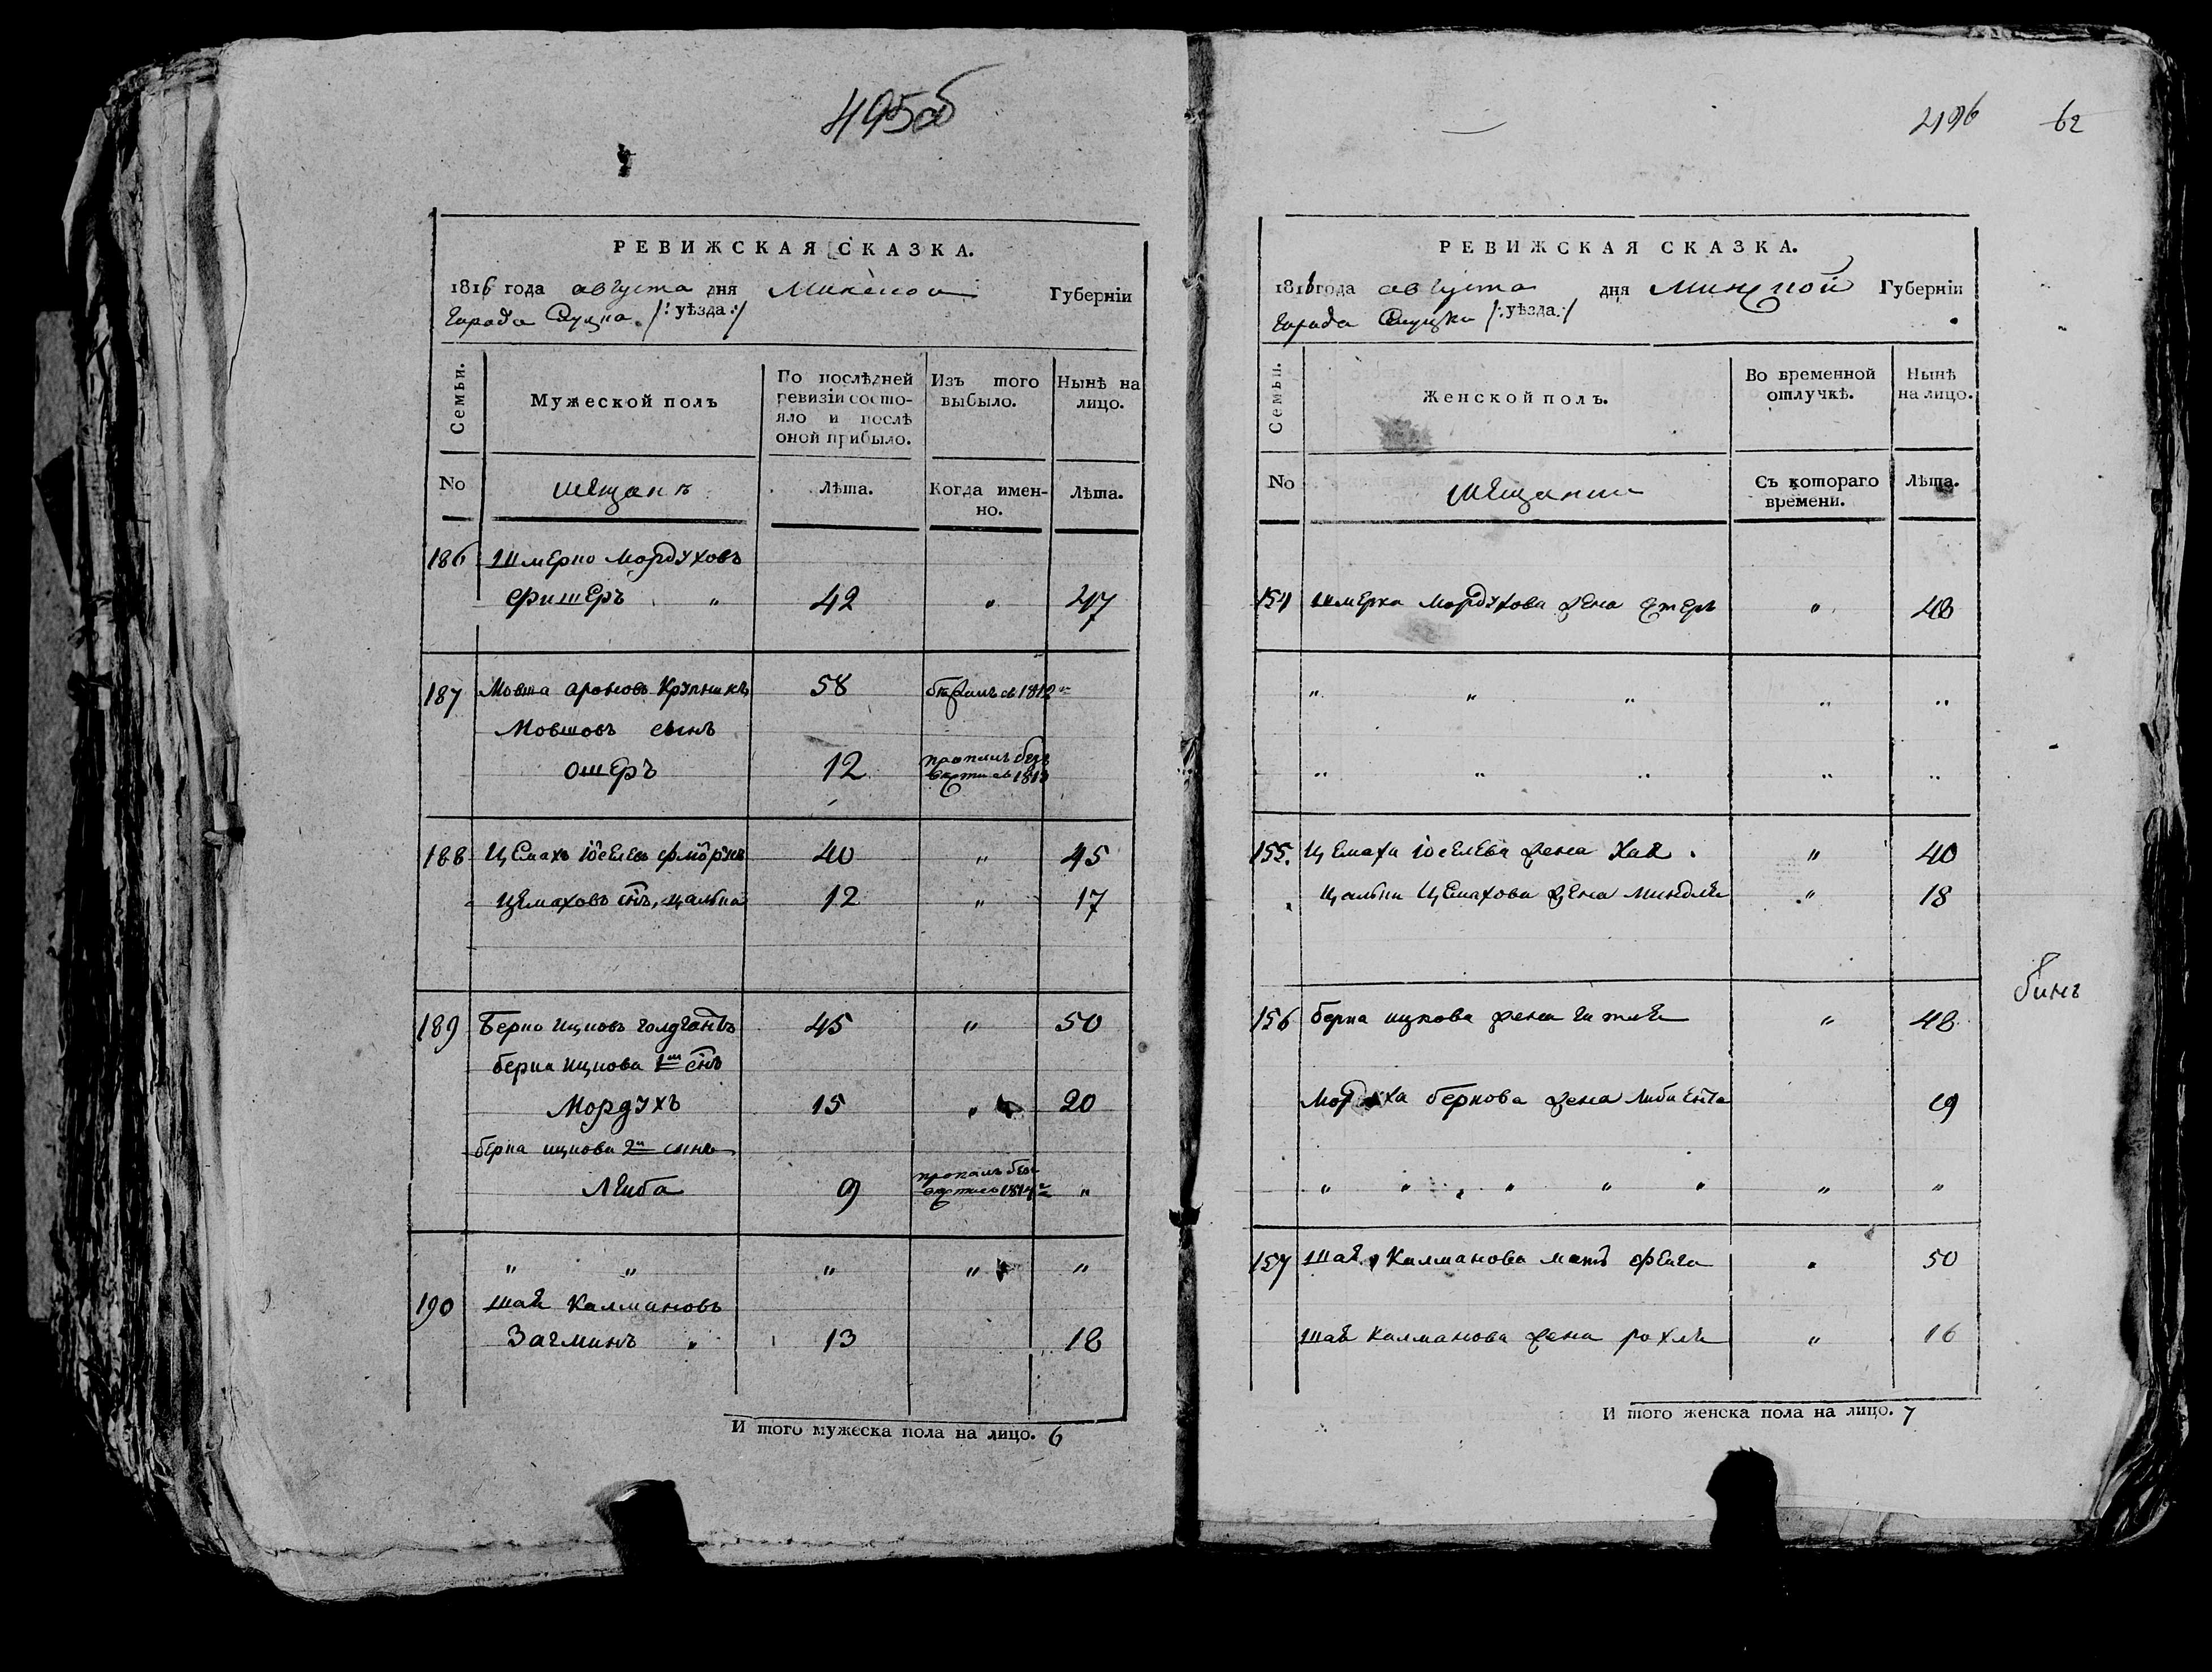 495об
РЕВИЖСКАЯ СКАЗКА.
1816 года августа дня Минской Губерніи
города Слуцка /: уѣзда :/
Семьи.
Мужеской полъ
По послѣдней ревизіи состо-
яло и послѣ
оной прибыло.
Изъ того
выбыло.
Нынѣ на
лицо.
No
мещанъ
Лѣта.
Когда имен-
но.
Лѣта.
186 Шмерко Мордуховъ
Фишеръ " 42 " 47
187 Мовша Ароновъ Крупникъ 58 1812
Мовшовъ сынъ
Ошеръ 12 пропалъ безъ
вести въ 1812
188 Цемахъ Іоселевъ 40 " 45
Цемаховъ снъ, Цалька 12 " 17
189 Берко Ицковъ 45 " 50
берка Ицкова 1й снъ
Мордухъ 15 " 20
берка ицкова 2й сынъ
Леиба 9 пропалъ без
вести в "
" " " " "
190 Шая Калмановъ
Загминъ 13 18
И того мужеска пола на лицо. 6
496 62
РЕВИЖСКАЯ СКАЗКА.
1816 года августа дня Минской Губерніи
города Слуцка /: уѣзда :/
Семьи.
Женской полъ.
Во временной
отлучкѣ.
Нынѣ
на лицо.
No
мещанки
Съ котораго
времени.
Лѣта.
154 Шмерка Мордухова жена Етеръ " 48
" " " " "
" " " " "
155. Цемаха Іоселева жена Хая " 40
Цалки Цемахова жена Миндля " 18
156 берка ицкова жена Гитля " 48
бинъ
Мордуха беркова жена 19
" " " " " " " "
157 Шая Калманова мать Фейга " 50
Шая Калманова жена рохля " 16
И того женска пола на лицо. 7